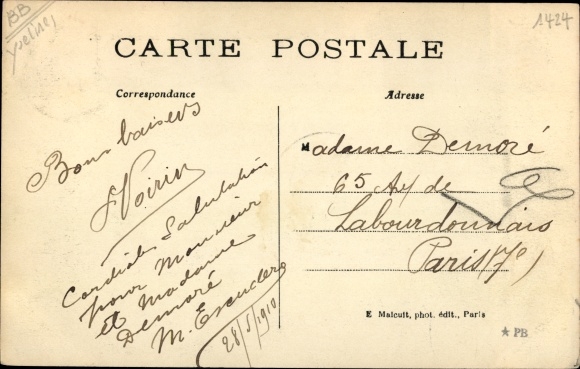 BB
Yvelines
1424
CARTE POSTALE
Correspondance
Adresse
Bons baisers
Voirin
Cordiale Salutation
pour Monsieur
et Madame
Demoré
M. Escudero
28/5/1910
Madame Demoré
65 Av de
Labourdonnais
Paris (7e)
E Malcuit, phot. édit., Paris
★ PB